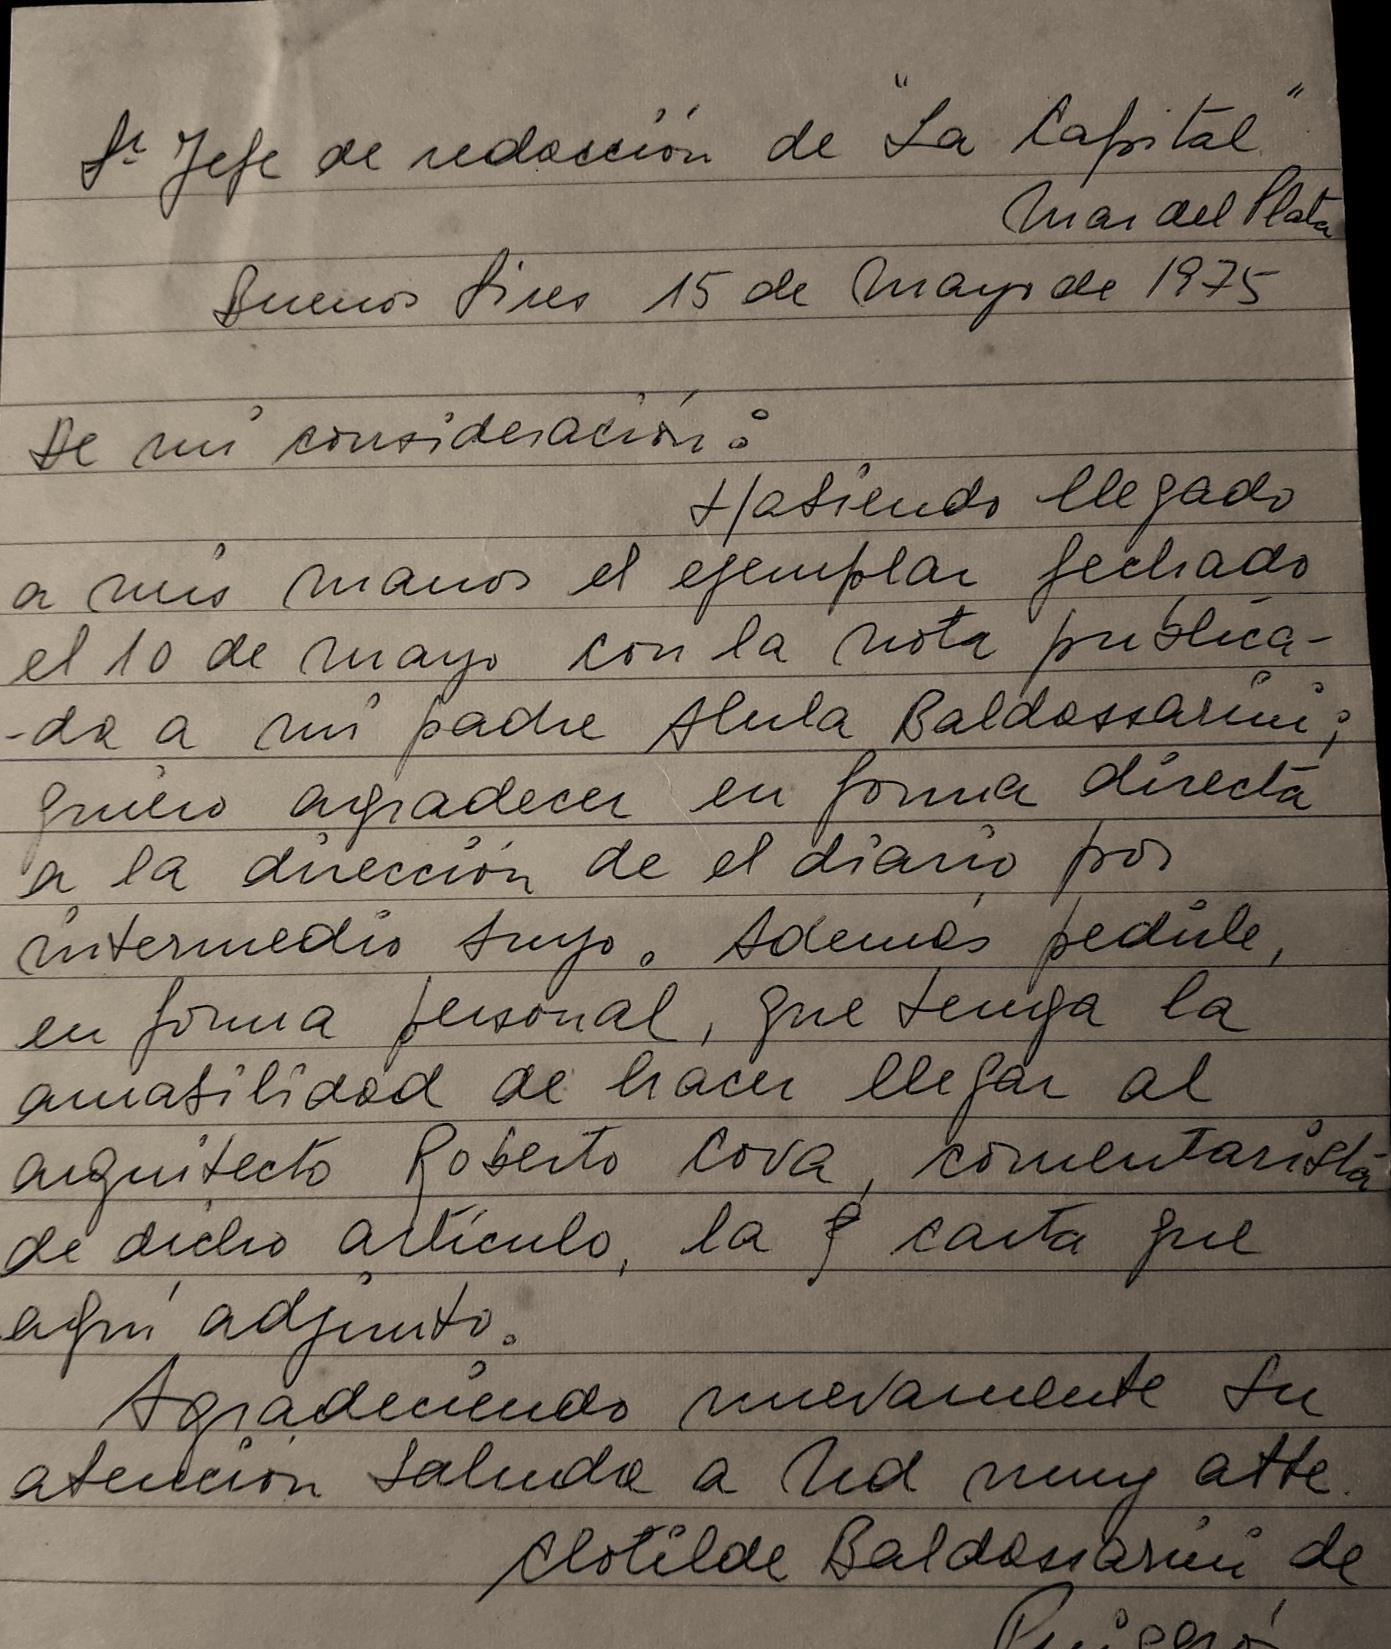 Sr Jefe de redacción de "La Capital"
Mar del Plata
Buenos Aires 15 de Mayo de 1975
De mi consideración:
Habiendo llegado
a mis manos el ejemplar fechado
el 10 de mayo con la nota publica-
-da a mi padre Alula Baldassarini;
quiero agradecer en forma directa
a la dirección de el diario por
intermedio suyo. Además pedirle,
en forma personal, que tenga la
amabilidad de hacer llegar al
arquitecto Roberto Cova, comentarista
de dicho artículo, la carta que
aquí adjunto.
Agradeciendo nuevamente su
atención saluda a Ud muy atte.
Clotilde Baldassarini de